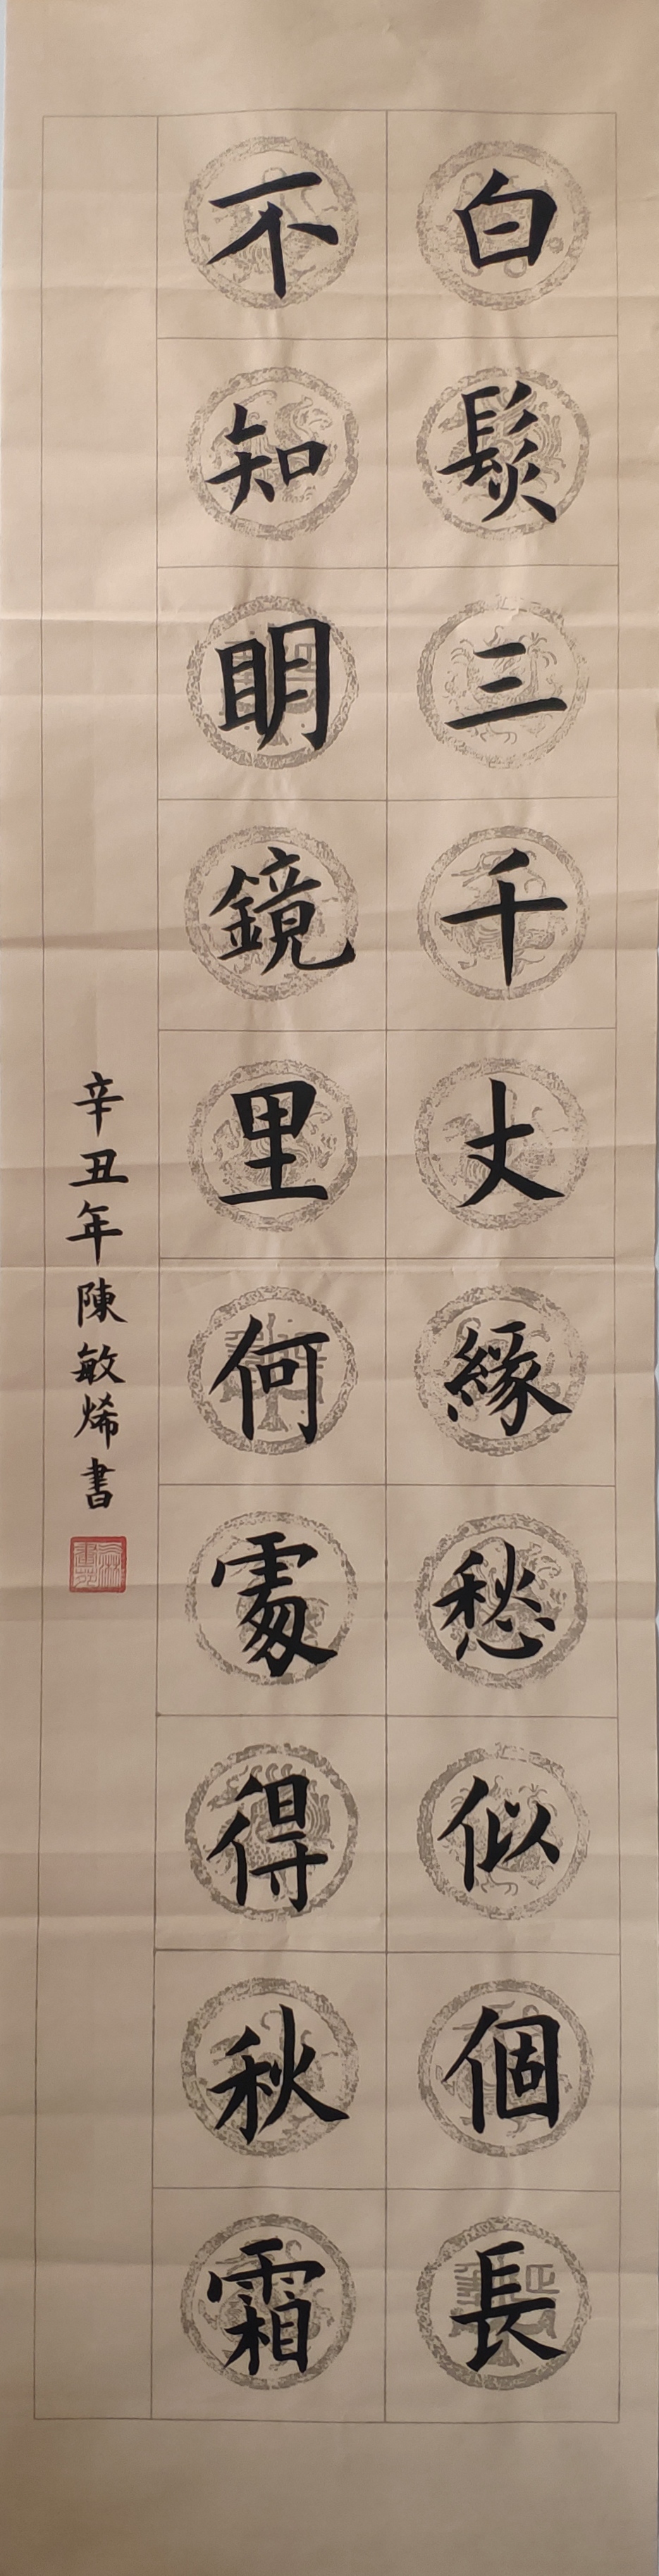 白髮三千丈緣愁似個長
不知眀鏡里何處得秋霜
辛丑年陳敏烯書